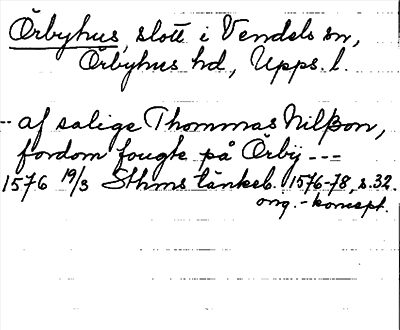 Örbyhus, slott i Vendels sn,
Örbyhus hd, Upps. l.
-- af salige Thommas Nilßon,
fordom fougte på Örby ---
1576 19/3 Sthms tänkeb. 1576-78, s. 32.
orig.-koncept.